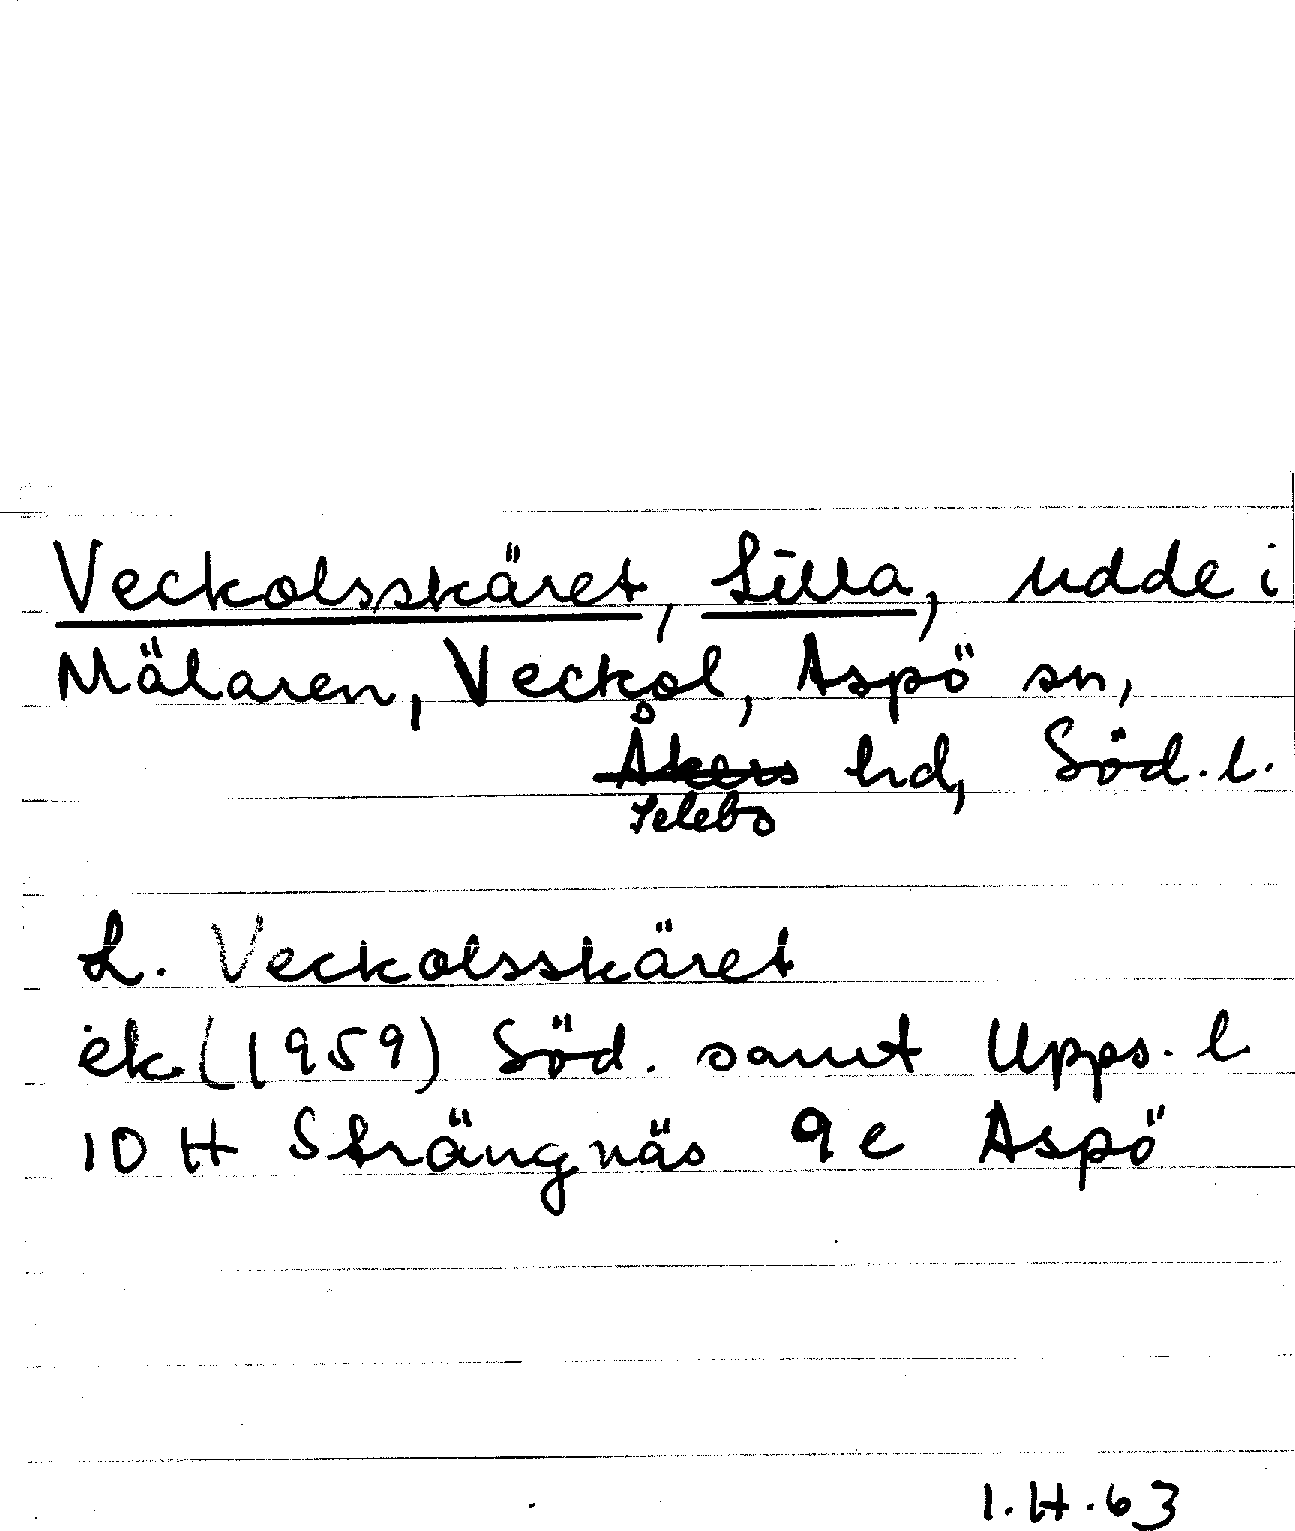 Veckolsskäret, Lilla, udde i
Mälaren, Veckol, Aspö sn,
Åkers hd, Söd. l.
Selebo
L. Veckolsskäret
ek (1959) Söd. samt Upps. l
10 H Strängnäs 9 e Aspö
I.H.63